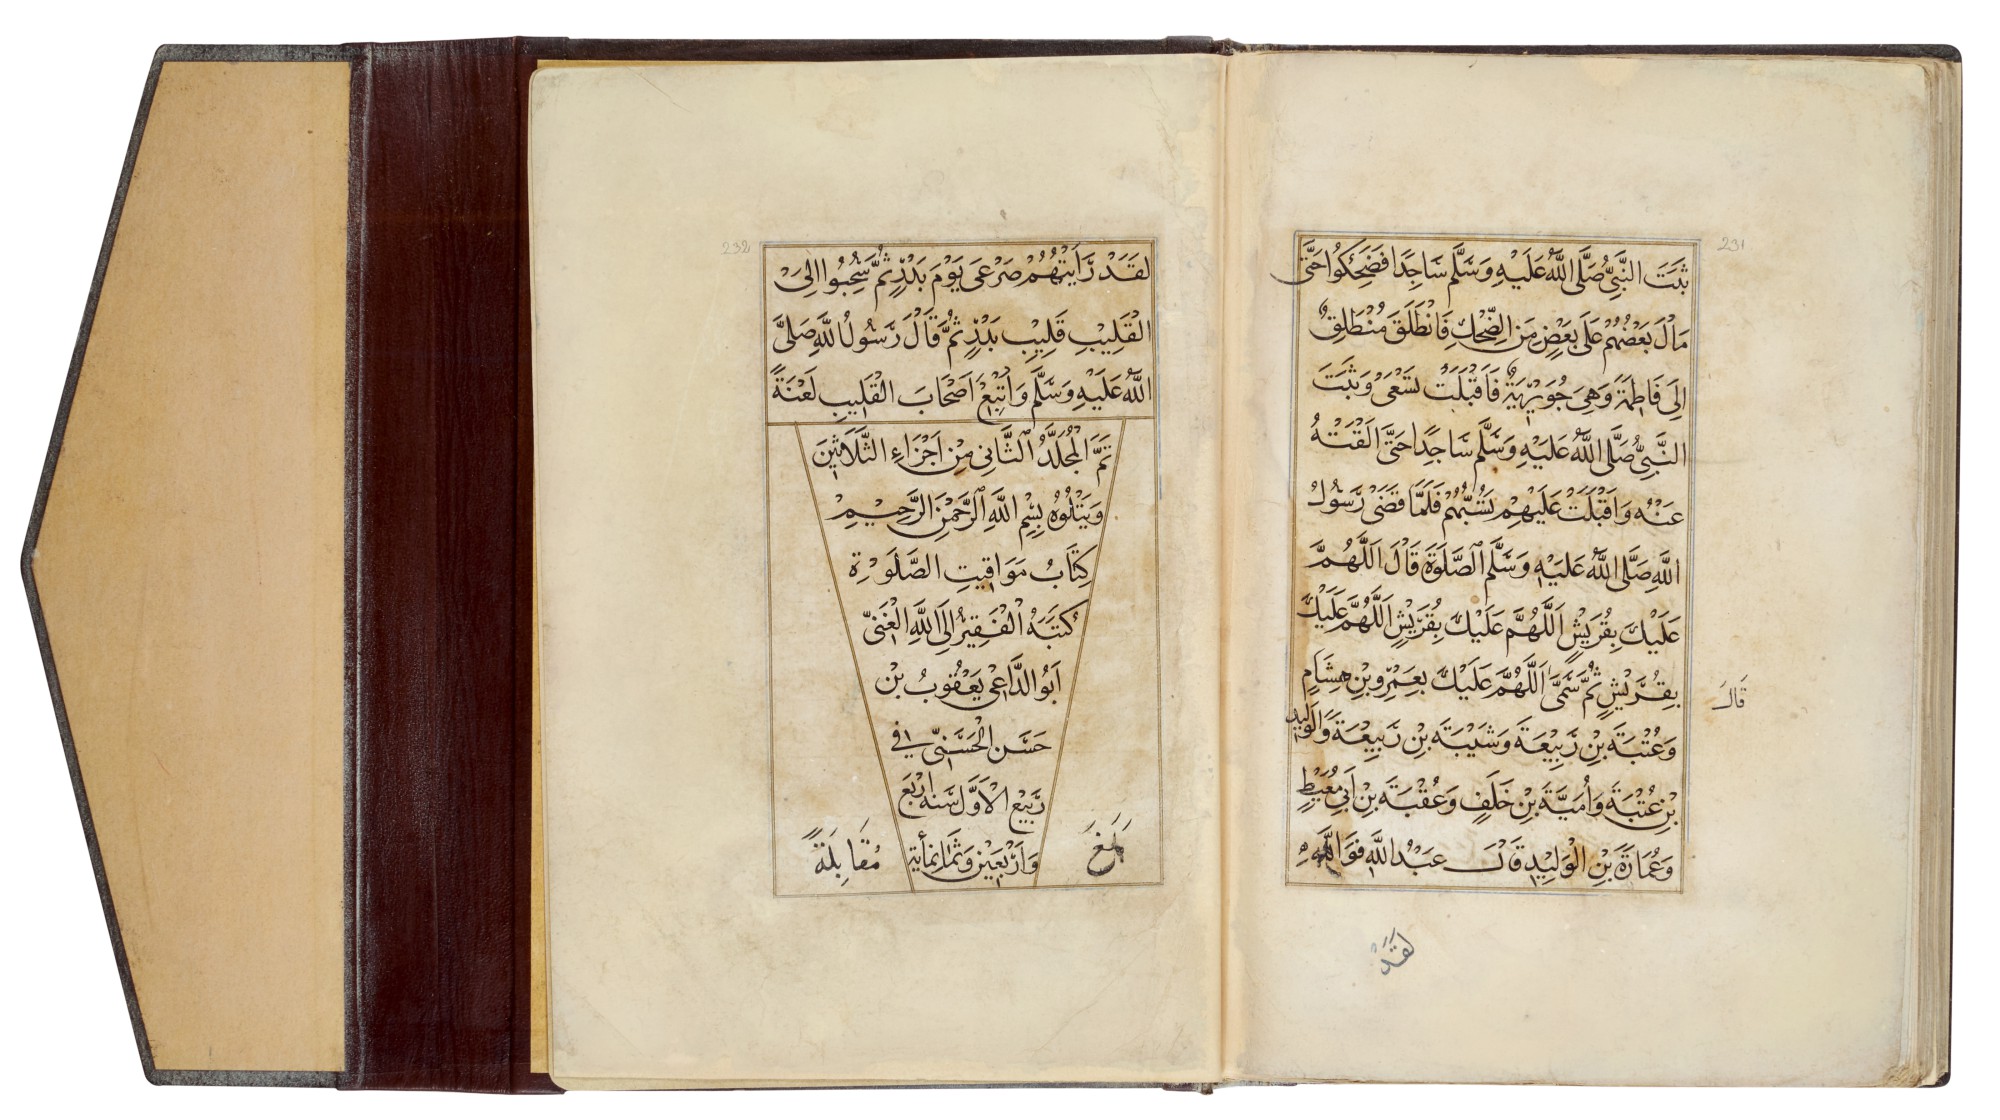 231
ثَبَتَ النَّبِيُّ صَلَّى اللَّهُ عَلَيْهِ وَسَلَّمَ سَاجِدًا فَضَحِكُوا حَتَّى
مَالَ بَعْضُهُمْ عَلَى بَعْضٍ مِنَ الضِّحْكِ فَانْطَلَقَ مُنْطَلِقٌ
اِلَى فَاطِمَةَ وَهِيَ جُوَيْرِيَةٌ فَاَقْبَلَتْ تَسْعَى وَثَبَتَ
النَّبِيُّ صَلَّى اللَّهُ عَلَيْهِ وَسَلَّمَ سَاجِدًا حَتَّى اَلْقَتْهُ
عَنْهُ وَاَقْبَلَتْ عَلَيْهِمْ تَسُبُّهُمْ فَلَمَّا قَضَى رَسُولُ
اللَّهِ صَلَّى اللَّهُ عَلَيْهِ وَسَلَّمَ الصَّلَوةَ قَالَ اَللَّهُمَّ
عَلَيْكَ بِقُرَيْشٍ اَللَّهُمَّ عَلَيْكَ بِقُرَيْشٍ اَللَّهُمَّ عَلَيْكَ
بِقُرَيْشٍ ثُمَّ سَمَّى اَللَّهُمَّ عَلَيْكَ بِعَمْرِو بْنِ هِشَامٍ
وَعُتْبَةَ بْنِ رَبِيعَةَ وَشَيْبَةَ بْنِ رَبِيعَةَ وَالْوَلِيدِ
بْنِ عُتْبَةَ وَاُمَيَّةَ بْنِ خَلَفٍ وَعُقْبَةَ بْنِ اَبِي مُعَيْطٍ
وَعُمَارَةَ بْنِ الْوَلِيدِ قَالَ عَبْدُ اللَّهِ فَوَاللَّهِ
قَالَ
لَقَدْ
232
لَقَدْ رَاَيْتُهُمْ صَرْعَى يَوْمَ بَدْرٍ ثُمَّ سُحِبُوا اِلَى
الْقَلِيبِ قَلِيبِ بَدْرٍ ثُمَّ قَالَ رَسُولُ اللَّهِ صَلَّى
اللَّهُ عَلَيْهِ وَسَلَّمَ وَاُتْبِعَ اَصْحَابَ الْقَلِيبِ لَعْنَةً
تَمَّ الْمُجَلَّدُ الثَّانِي مِنْ اَجْزَاءِ الثَّلَاثِينَ
وَيَتْلُوهُ بِسْمِ اللَّهِ الرَّحْمَنِ الرَّحِيمِ
كِتَابُ مَوَاقِيتِ الصَّلَوةِ
كَتَبَهُ الْفَقِيرُ اِلَى اللَّهِ الْغَنِيِّ
اَبُو الدَّاعِي يَعْقُوبُ بْنُ
حَسَنِ الْحَسَنِيِّ فِي
رَبِيعِ الْاَوَّلِ سَنَةَ اَرْبَعَ
وَاَرْبَعِينَ وَثَمَانْمِائَةِ
بَلَغَ
مُقَابِلَةً